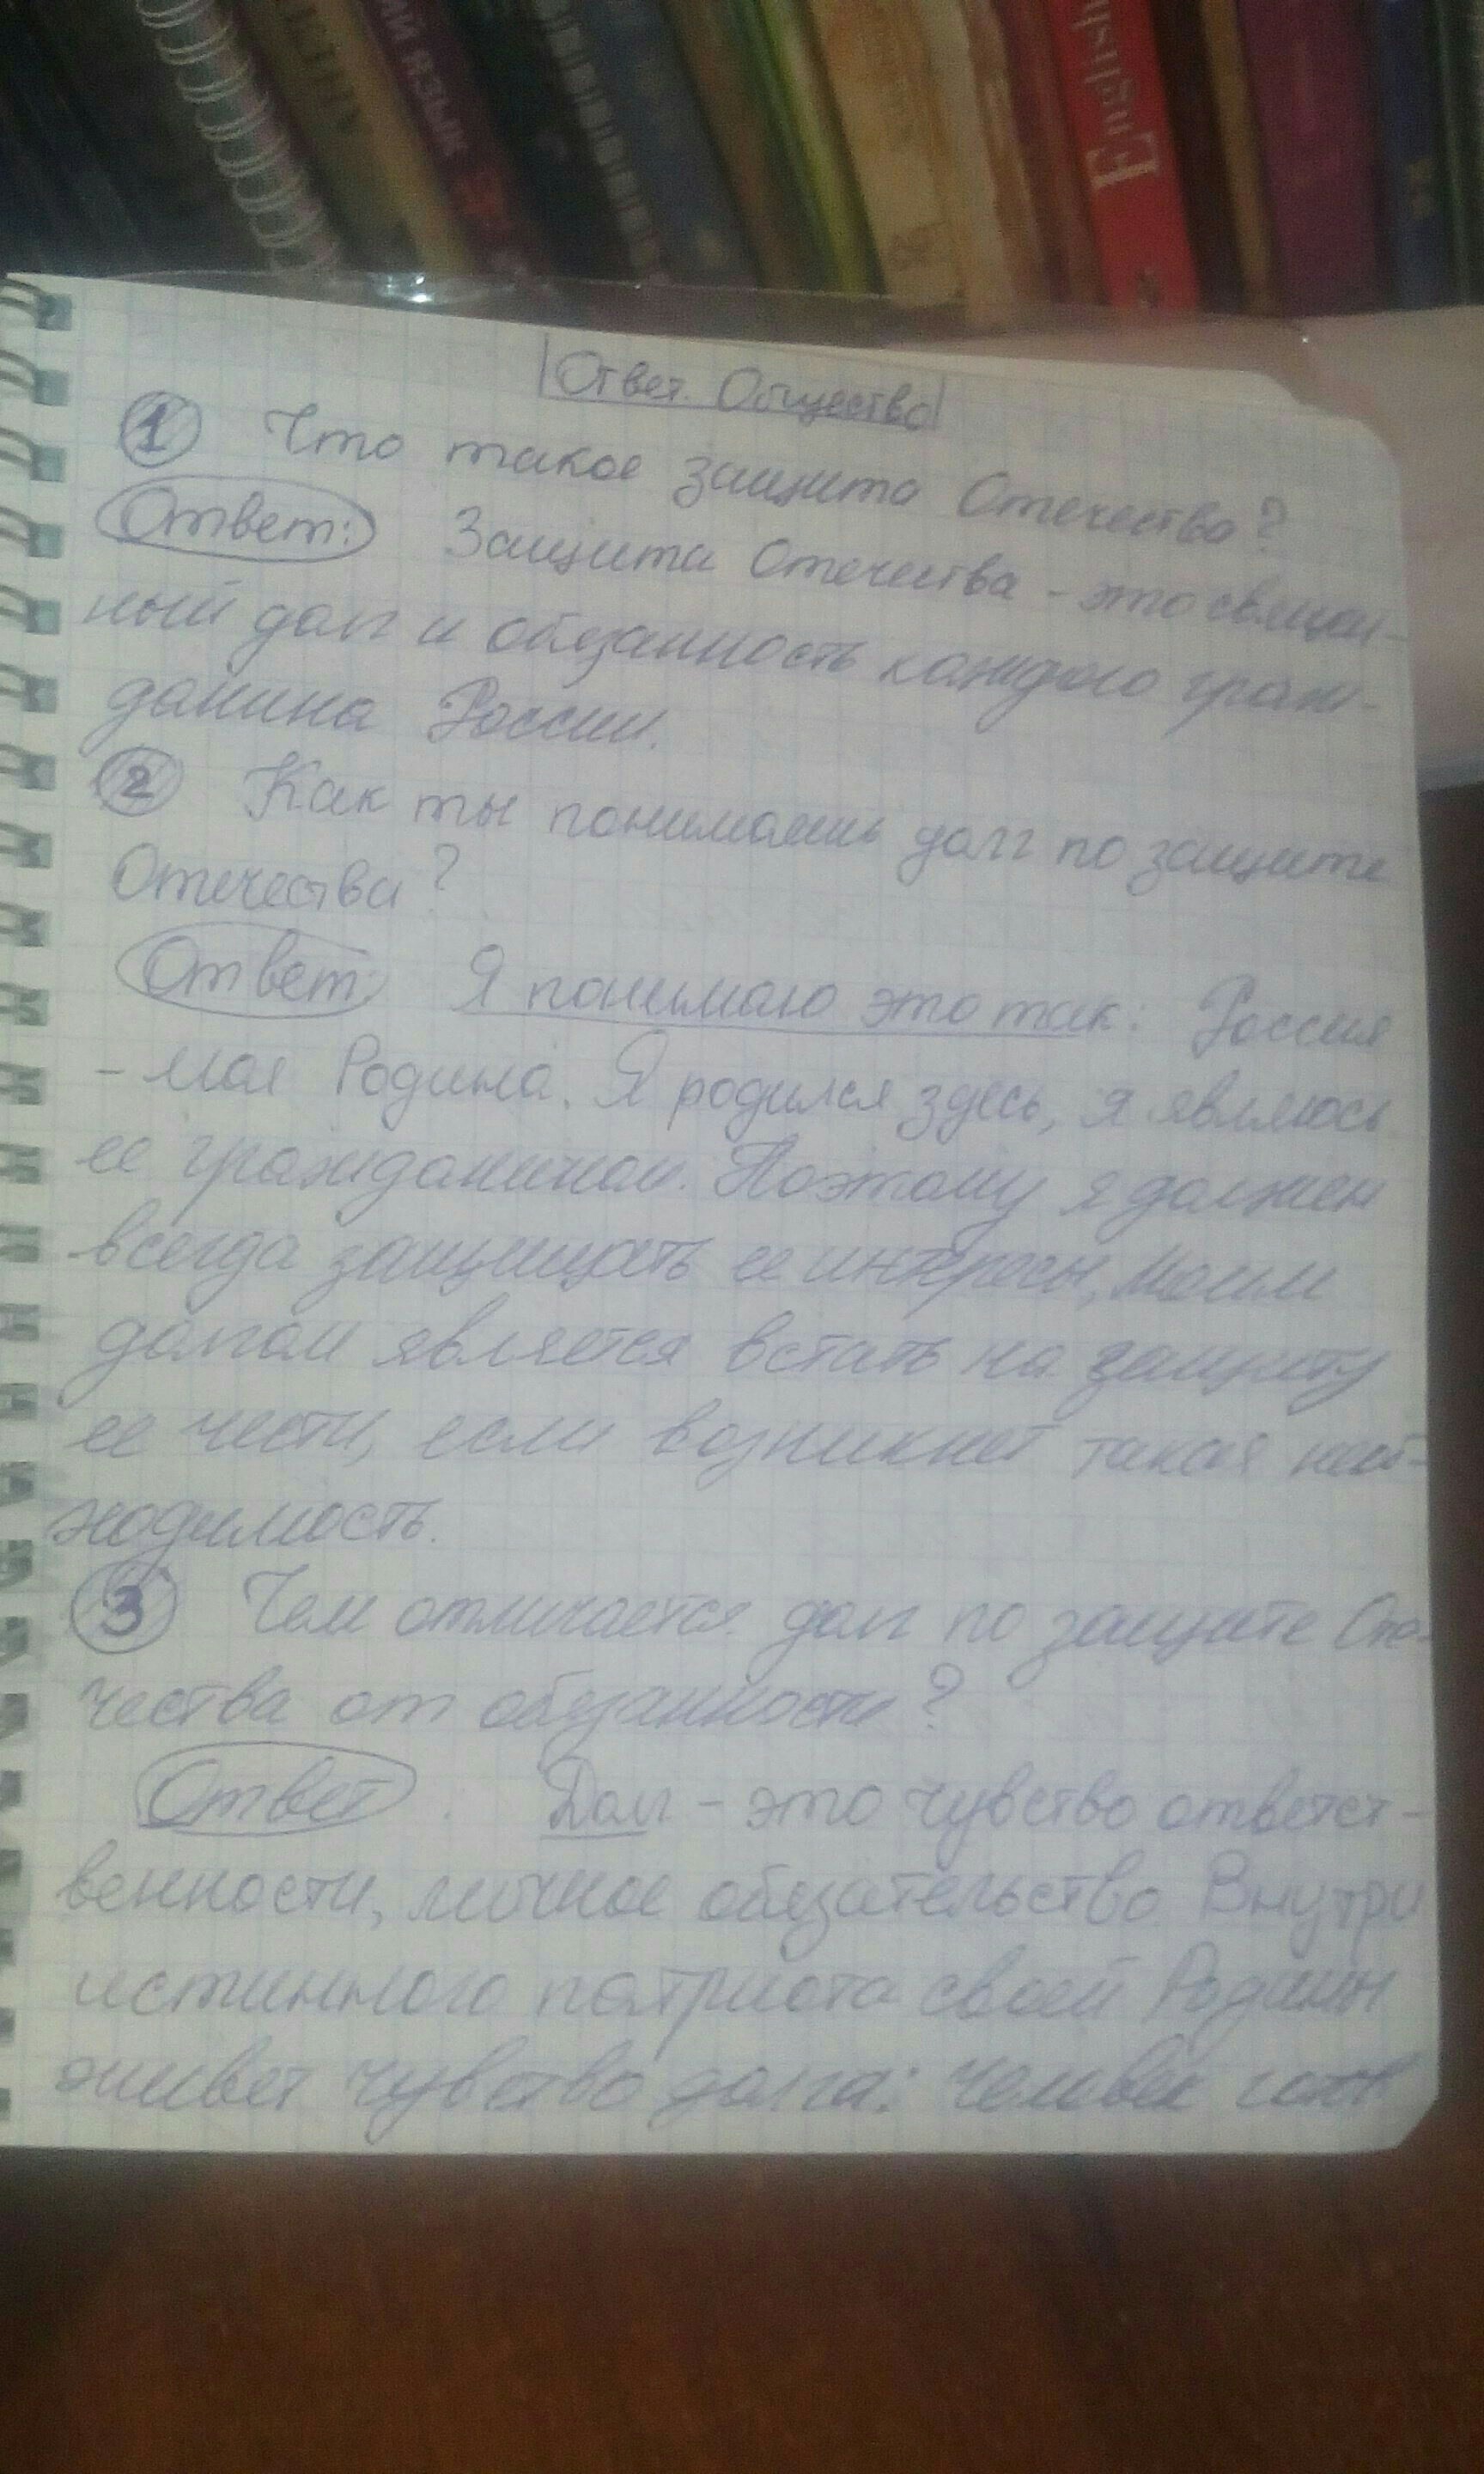 ИЙ ЯЗЫК
English
Ответ. Общество
1 Что такое защита Отечества?
Ответ: Защита Отечества - это священ-
ный долг и обязанность каждого граж-
данина России.
2 Как ты понимаешь долг по защите
Отечества?
Ответ: Я понимаю это так: Россия
- моя Родина. Я родился здесь, я являюсь
ее гражданином. Поэтому я должен
всегда защищать ее интересы, моим
долгом является встать на защиту
ее чести, если возникнет такая необ-
ходимость.
3 Чем отличается долг по защите Оте-
чества от обязанности?
Ответ. Долг - это чувство ответст-
венности, личное обязательство. Внутри
истинного патриота своей Родины
живет чувство долга: человек готов